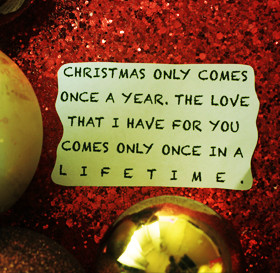 CHRISTMAS ONLY COMES
ONCE A YEAR. THE LOVE
THAT I HAVE FOR YOU
COMES ONLY ONCE IN A
L I F E T I M E .